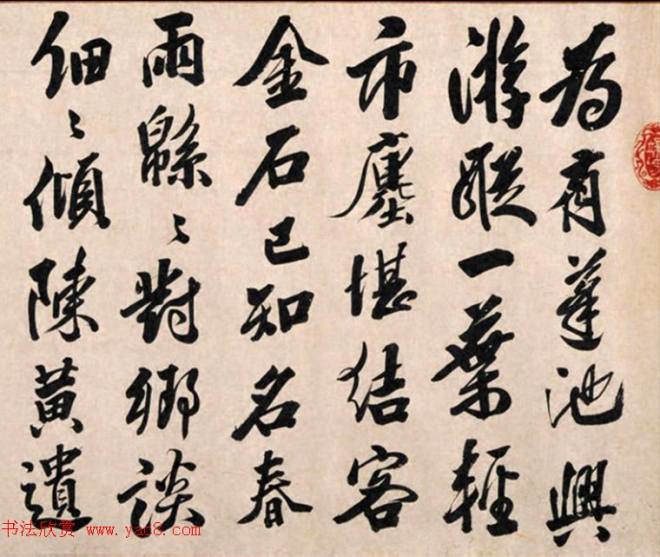 為有蓬池興
游蹤一葉輕
市塵堪結客
金石已知名春
雨緜〻對鄉談
細〻傾陳黃遺
书法欣赏 www.yac8.com